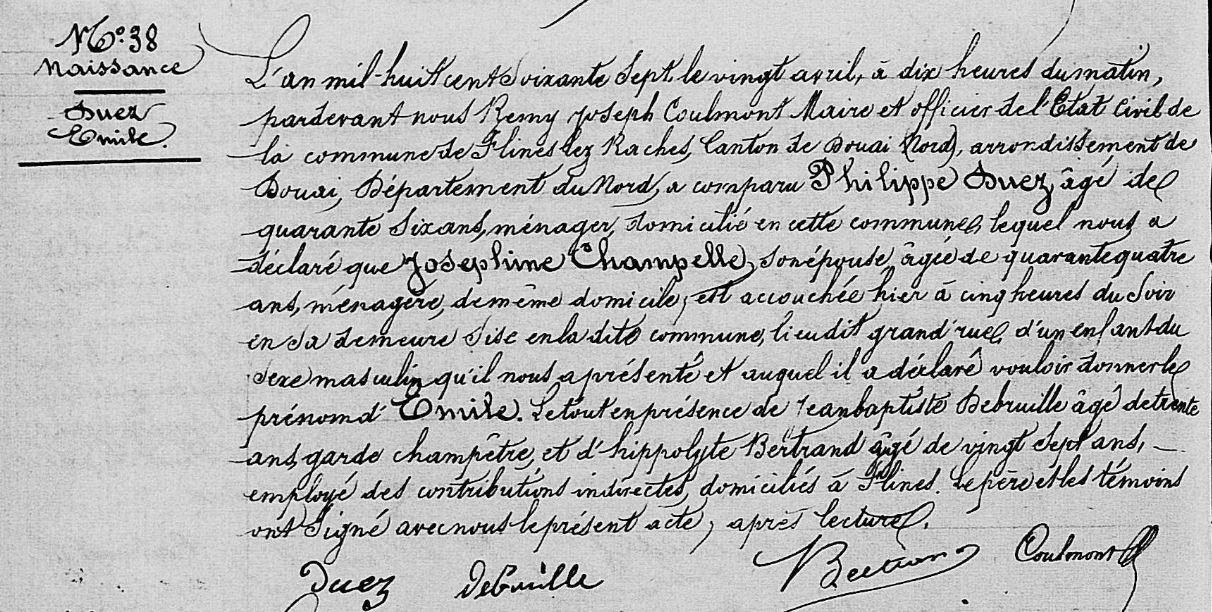 No. 38
Naissance
Duez
Emile.
L'an mil huit cent soixante sept le vingt avril, à dix heures du matin,
pardevant nous Remy Joseph Coulmont Maire et officier de l'Etat Civil de
la commune de Flines lez Raches, Canton de Douai (Nord), arrondissement de
Douai, Département du Nord, a comparu Philippe Duez, âgé de
quarante six ans, ménager, domicilié en cette commune, lequel nous a
déclaré que Josephine Champelle, son épouse, âgée de quarante quatre
ans, ménagère, de même domicile, est accouchée hier à cinq heures du soir
en sa demeure sise en la dite commune, lieu dit grand'rue, d'un enfant du
sexe masculin qu'il nous a présenté et auquel il a déclaré vouloir donner le
prénom d'Emile. Le tout en présence de Jean baptiste Debruille âgé de trente
ans, garde champêtre, et d'hippolyte Bertrand âgé de vingt sept ans, –
employé des contributions indirectes, domiciliés à Flines. Le père et les témoins
ont signé avec nous le présent acte, après lecture.
Duez Debruille Bertrand Coulmont